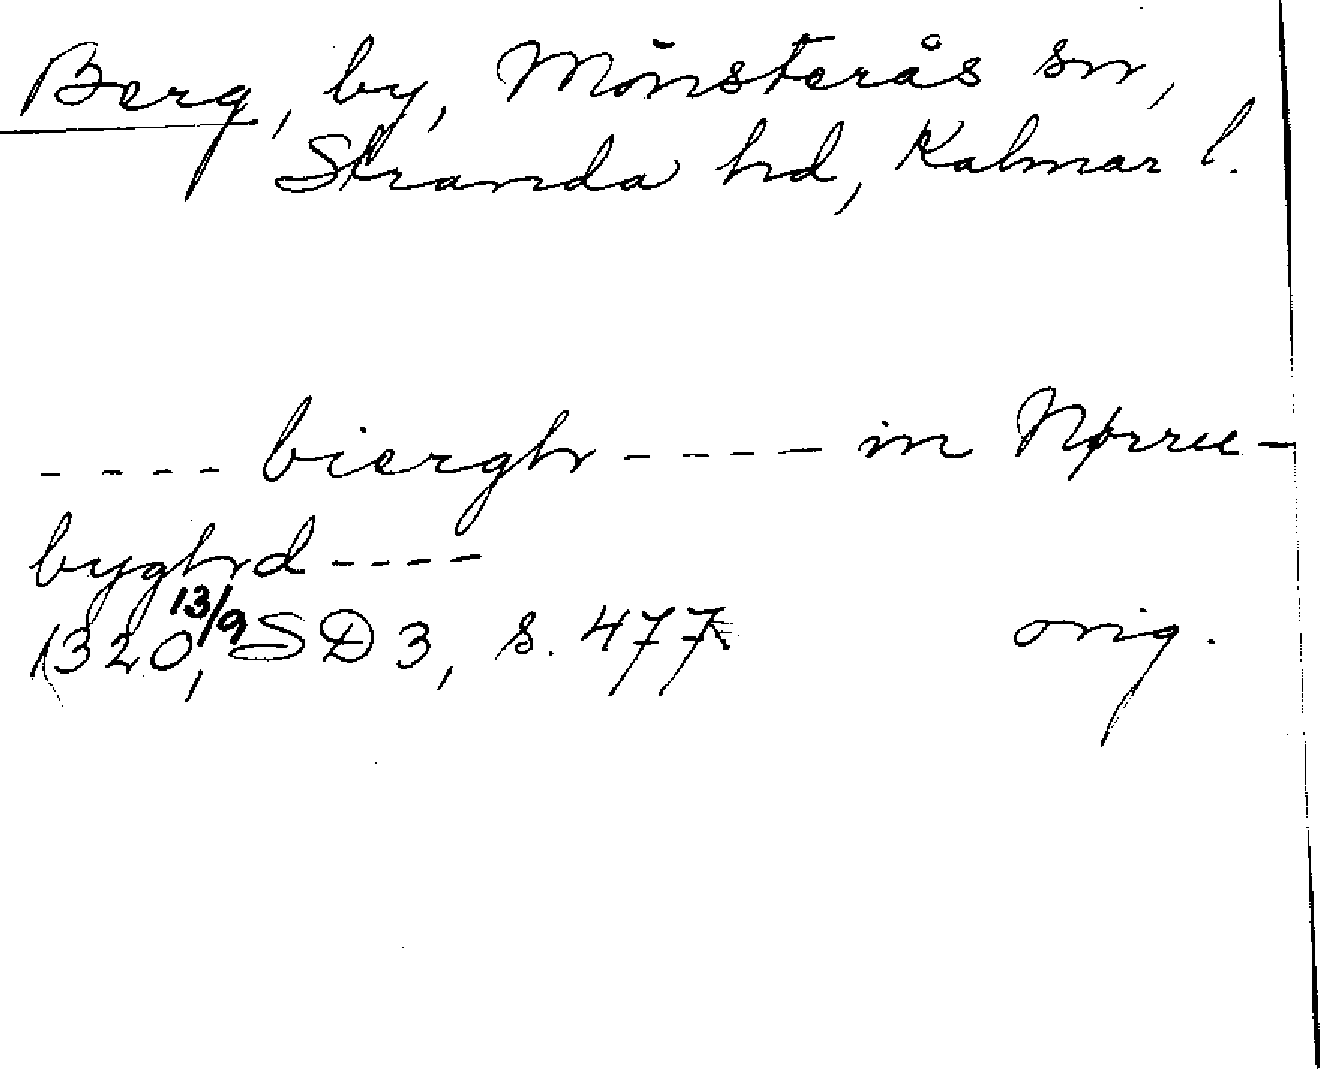 Berg, by, Mönsterås sn,
Stranda hd, Kalmar l.
---- biergh ---- in Nørræ-
byghd ----
1320 13/9, SD 3, s. 477 orig.